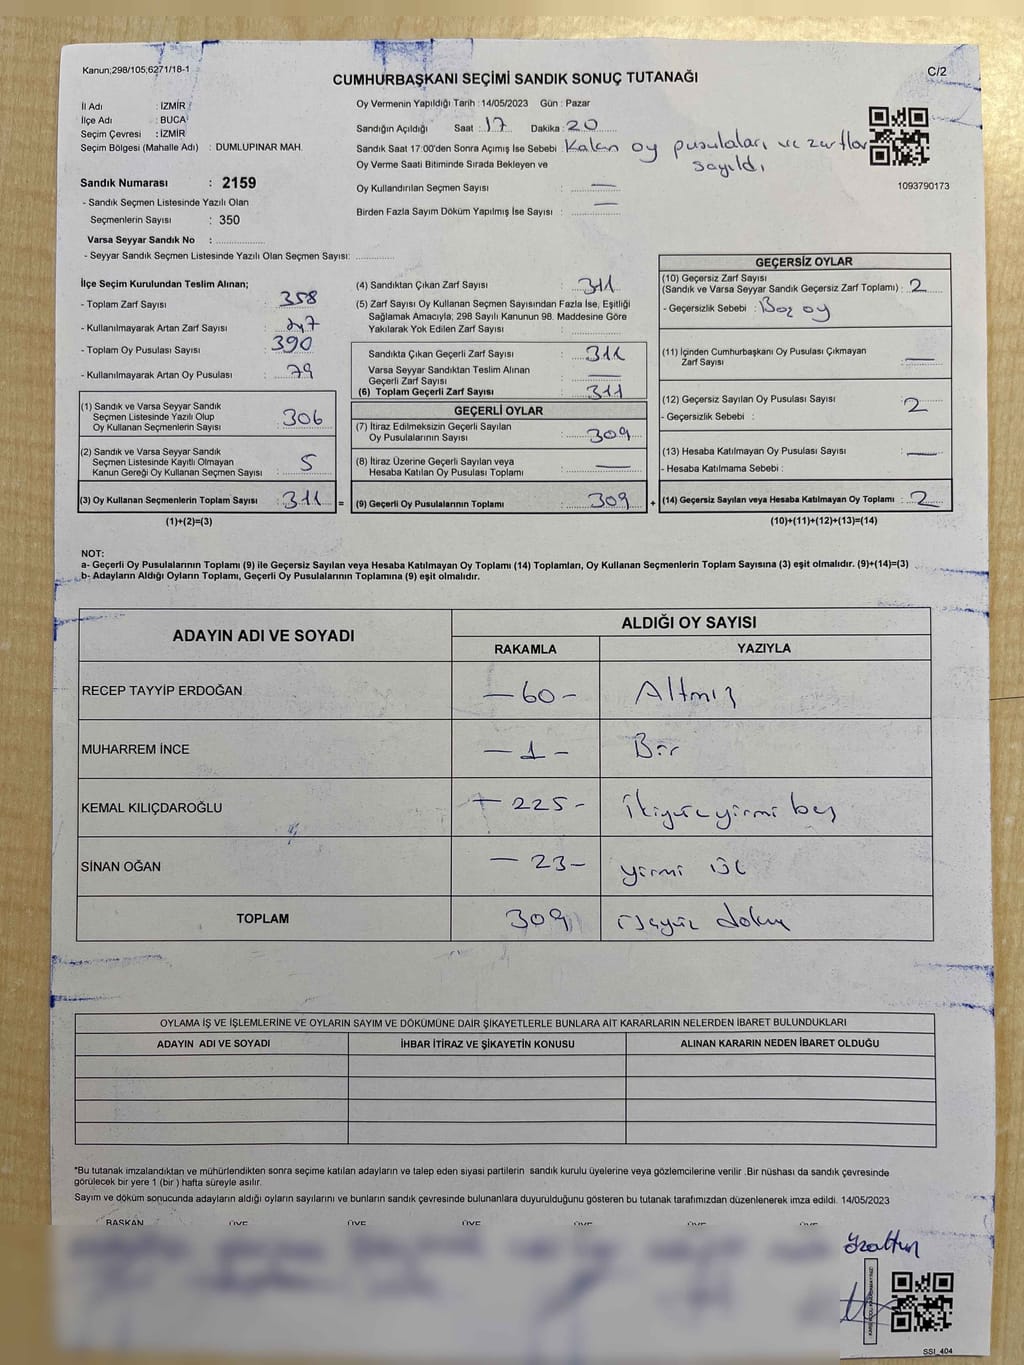 Kanun;298/105;6271/18-1
CUMHURBAŞKANI SEÇİMİ SANDIK SONUÇ TUTANAĞI
C/2
İl Adı : İZMİR
İlçe Adı : BUCA
Seçim Çevresi : İZMİR
Seçim Bölgesi (Mahalle Adı) : DUMLUPINAR MAH.
Oy Vermenin Yapıldığı Tarih : 14/05/2023 Gün : Pazar
Sandığın Açıldığı Saat : 17 Dakika : 20
Sandık Saat 17:00'den Sonra Açımış İse Sebebi Kalan oy pusulaları ve zarflar
sayıldı.
Oy Verme Saati Bitiminde Sırada Bekleyen ve
Oy Kullandırılan Seçmen Sayısı : —
Birden Fazla Sayım Döküm Yapılmış İse Sayısı : —
1093790173
Sandık Numarası : 2159
- Sandık Seçmen Listesinde Yazılı Olan
Seçmenlerin Sayısı : 350
Varsa Seyyar Sandık No :
- Seyyar Sandık Seçmen Listesinde Yazılı Olan Seçmen Sayısı:
İlçe Seçim Kurulundan Teslim Alınan;
- Toplam Zarf Sayısı : 358
- Kullanılmayarak Artan Zarf Sayısı :
- Toplam Oy Pusulası Sayısı : 390
- Kullanılmayarak Artan Oy Pusulası : 79
(1) Sandık ve Varsa Seyyar Sandık
Seçmen Listesinde Yazılı Olup
Oy Kullanan Seçmenlerin Sayısı : 306
(2) Sandık ve Varsa Seyyar Sandık
Seçmen Listesinde Kayıtlı Olmayan
Kanun Gereği Oy Kullanan Seçmen Sayısı : 5
(3) Oy Kullanan Seçmenlerin Toplam Sayısı : 311 =
(1)+(2)=(3)
(4) Sandıktan Çıkan Zarf Sayısı : 311
(5) Zarf Sayısı Oy Kullanan Seçmen Sayısından Fazla İse, Eşitliği
Sağlamak Amacıyla; 298 Sayılı Kanunun 98. Maddesine Göre
Yakılarak Yok Edilen Zarf Sayısı :
Sandıkta Çıkan Geçerli Zarf Sayısı : 311
Varsa Seyyar Sandıktan Teslim Alınan
Geçerli Zarf Sayısı : —
(6) Toplam Geçerli Zarf Sayısı : 311
GEÇERLİ OYLAR
(7) İtiraz Edilmeksizin Geçerli Sayılan
Oy Pusulalarının Sayısı : 309
(8) İtiraz Üzerine Geçerli Sayılan veya
Hesaba Katılan Oy Pusulası Toplamı : —
(9) Geçerli Oy Pusulalarının Toplamı : 309 +
GEÇERSİZ OYLAR
(10) Geçersiz Zarf Sayısı
(Sandık ve Varsa Seyyar Sandık Geçersiz Zarf Toplamı) : 2
- Geçersizlik Sebebi : Boş oy
(11) İçinden Cumhurbaşkanı Oy Pusulası Çıkmayan
Zarf Sayısı : —
(12) Geçersiz Sayılan Oy Pusulası Sayısı : 2
- Geçersizlik Sebebi :
(13) Hesaba Katılmayan Oy Pusulası Sayısı : —
- Hesaba Katılmama Sebebi :
(14) Geçersiz Sayılan veya Hesaba Katılmayan Oy Toplamı : 2
(10)+(11)+(12)+(13)=(14)
NOT:
a- Geçerli Oy Pusulalarının Toplamı (9) ile Geçersiz Sayılan veya Hesaba Katılmayan Oy Toplamı (14) Toplamları, Oy Kullanan Seçmenlerin Toplam Sayısına (3) eşit olmalıdır. (9)+(14)=(3)
b- Adayların Aldığı Oyların Toplamı, Geçerli Oy Pusulalarının Toplamına (9) eşit olmalıdır.
ADAYIN ADI VE SOYADI
ALDIĞI OY SAYISI
RAKAMLA YAZIYLA
RECEP TAYYİP ERDOĞAN — 60 — Altmış
MUHARREM İNCE — 1 — Bir
KEMAL KILIÇDAROĞLU — 225 — İkiyüz yirmi beş
SİNAN OĞAN — 23 — yirmi üç
TOPLAM 309 üçyüz dokuz
OYLAMA İŞ VE İŞLEMLERİNE VE OYLARIN SAYIM VE DÖKÜMÜNE DAİR ŞİKAYETLERLE BUNLARA AİT KARARLARIN NELERDEN İBARET BULUNDUKLARI
ADAYIN ADI VE SOYADI İHBAR İTİRAZ VE ŞİKAYETİN KONUSU ALINAN KARARIN NEDEN İBARET OLDUĞU
*Bu tutanak imzalandıktan ve mühürlendikten sonra seçime katılan adayların ve talep eden siyasi partilerin sandık kurulu üyelerine veya gözlemcilerine verilir .Bir nüshası da sandık çevresinde
görülecek bir yere 1 (bir ) hafta süreyle asılır.
Sayım ve döküm sonucunda adayların aldığı oyların sayılarını ve bunların sandık çevresinde bulunanlara duyurulduğunu gösteren bu tutanak tarafımızdan düzenlenerek imza edildi. 14/05/2023
BAŞKAN ÜYE ÜYE ÜYE ÜYE ÜYE ÜYE
SSI_404